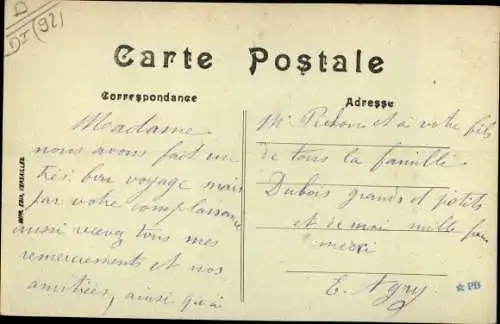 D
DI (92)
Carte Postale
Correspondance
Adresse
Madame
nous avons fait un
très bon voyage mais
par votre complassance
aussi vœvez tous mes
remerciements et nos
amitiées, ainsi qu'à
Mr et à votre fils
de tous la famille
Dubois grands et petits
et de moi mille fois
merci
E. Agry
IMP. EDIA VERSAILLES
PB